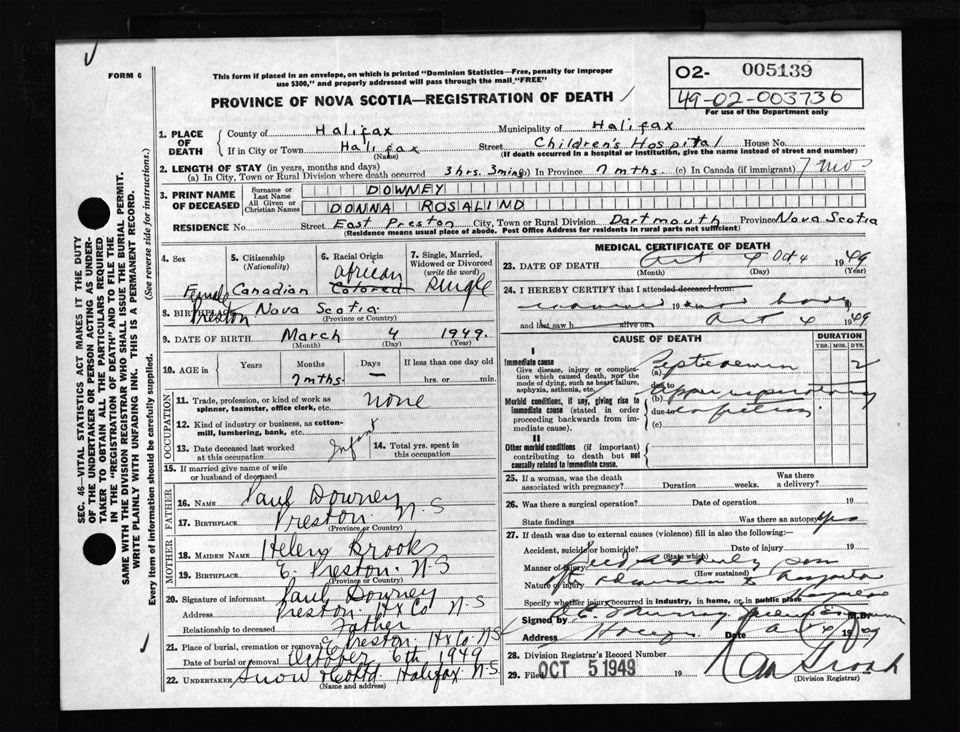 FORM 6
This form if placed in an envelope, on which is printed "Dominion Statistics—Free, penalty for improper
use $300," and properly addressed will pass through the mail "FREE"
PROVINCE OF NOVA SCOTIA—REGISTRATION OF DEATH
O2- 005139
49-02-003736
For use of the Department only
SEC. 46—VITAL STATISTICS ACT MAKES IT THE DUTY
OF THE UNDERTAKER OR PERSON ACTING AS UNDER-
TAKER TO OBTAIN ALL THE PARTICULARS REQUIRED
IN THE "REGISTRATION OF DEATH" AND TO FILE THE
SAME WITH THE DIVISION REGISTRAR WHO SHALL ISSUE THE BURIAL PERMIT.
WRITE PLAINLY WITH UNFADING INK. THIS IS A PERMANENT RECORD.
Every item of information should be carefully supplied. (See reverse side for instructions.)
1. PLACE OF DEATH
County of Halifax Municipality of Halifax
If in City or Town Halifax Street Children's Hospital House No.
(Name) (If death occurred in a hospital or institution, give the name instead of street and number)
2. LENGTH OF STAY (in years, months and days)
(a) In City, Town or Rural Division where death occurred 3 hrs. 5 mins (b) In Province 7 mths. (c) In Canada (if immigrant) 7 mo
3. PRINT NAME OF DECEASED
Surname or Last Name DOWNEY
All Given or Christian Names DONNA ROSALIND
RESIDENCE No. Street East Preston City, Town or Rural Division Dartmouth Province Nova Scotia
(Residence means usual place of abode. Post Office Address for residents in rural parts not sufficient)
4. Sex Female
5. Citizenship (Nationality) Canadian
6. Racial Origin African Colored
7. Single, Married, Widowed or Divorced (write the word) Single
8. BIRTHPLACE Preston Nova Scotia
(Province or Country)
9. DATE OF BIRTH March 4 1949.
(Month) (Day) (Year)
10. AGE in Years Months 7 mths. Days — If less than one day old hrs. or min.
OCCUPATION
11. Trade, profession, or kind of work as spinner, teamster, office clerk, etc. none
12. Kind of industry or business, as cotton-mill, lumbering, bank, etc.
Infant
13. Date deceased last worked at this occupation
14. Total yrs. spent in this occupation
15. If married give name of wife or husband of deceased
FATHER
16. NAME Paul Downey
17. BIRTHPLACE Preston N.S
(Province or Country)
MOTHER
18. MAIDEN NAME Helen Brooks
19. BIRTHPLACE E. Preston N.S
(Province or Country)
20. Signature of informant Paul Downey
Address Preston Hx Co N.S
Relationship to deceased Father
21. Place of burial, cremation or removal E Preston Hx Co NS
Date of burial or removal October 6th 1949
22. UNDERTAKER Snow & Co Ltd. Halifax N.S.
(Name and address)
MEDICAL CERTIFICATE OF DEATH
23. DATE OF DEATH Oct 4 1949
(Month) (Day) (Year)
24. I HEREBY CERTIFY that I attended deceased from:
19
and that I saw h alive on Oct 4 1949
CAUSE OF DEATH
DURATION
YRS. MOS. DYS.
I
Immediate cause
Give disease, injury or complication which caused death, not the mode of dying, such as heart failure, asphyxia, asthenia, etc.
(a) Septicemia 2
due to
Morbid conditions, if any, giving rise to immediate cause (stated in order proceeding backwards from immediate cause).
(b) upper respiratory
due to infection
(c)
II
Other morbid conditions (if important) contributing to death but not causally related to immediate cause.
25. If a woman, was the death associated with pregnancy? Duration weeks. Was there a delivery?
26. Was there a surgical operation? Date of operation 19
State findings Was there an autopsy? yes
27. If death was due to external causes (violence) fill in also the following:—
Accident, suicide or homicide? Date of injury 19
(State which)
Manner of injury
(How sustained)
Nature of injury
Specify whether injury occurred in industry, in home, or in public place
Signed by M.D.
Address Date Oct 4 1949
28. Division Registrar's Record Number
29. Filed OCT 5 1949 19
(Division Registrar)